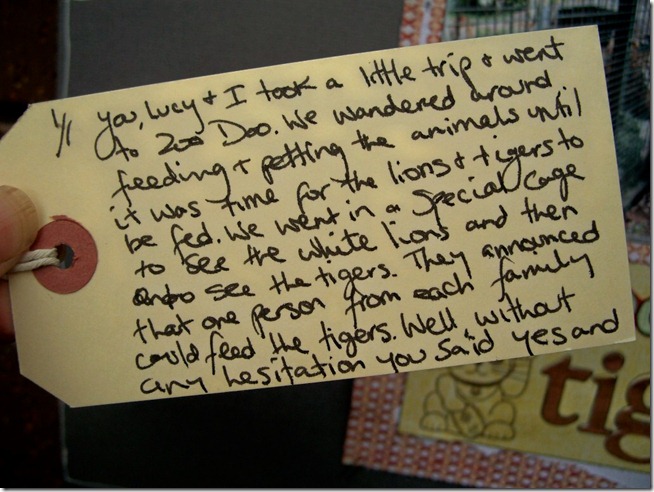 1/1 You, Lucy & I took a little trip & went
to Zoo Doo. We wandered around
feeding & petting the animals until
it was time for the lions & tigers to
be fed. We went in a special cage
to see the white lions and then
to see the tigers. They announced
that one person from each family
could feed the tigers. Well without
any hesitation you said yes and
tig